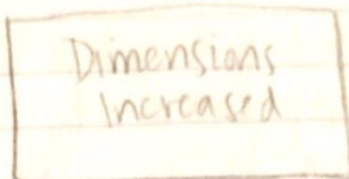 Dimensions
Increased